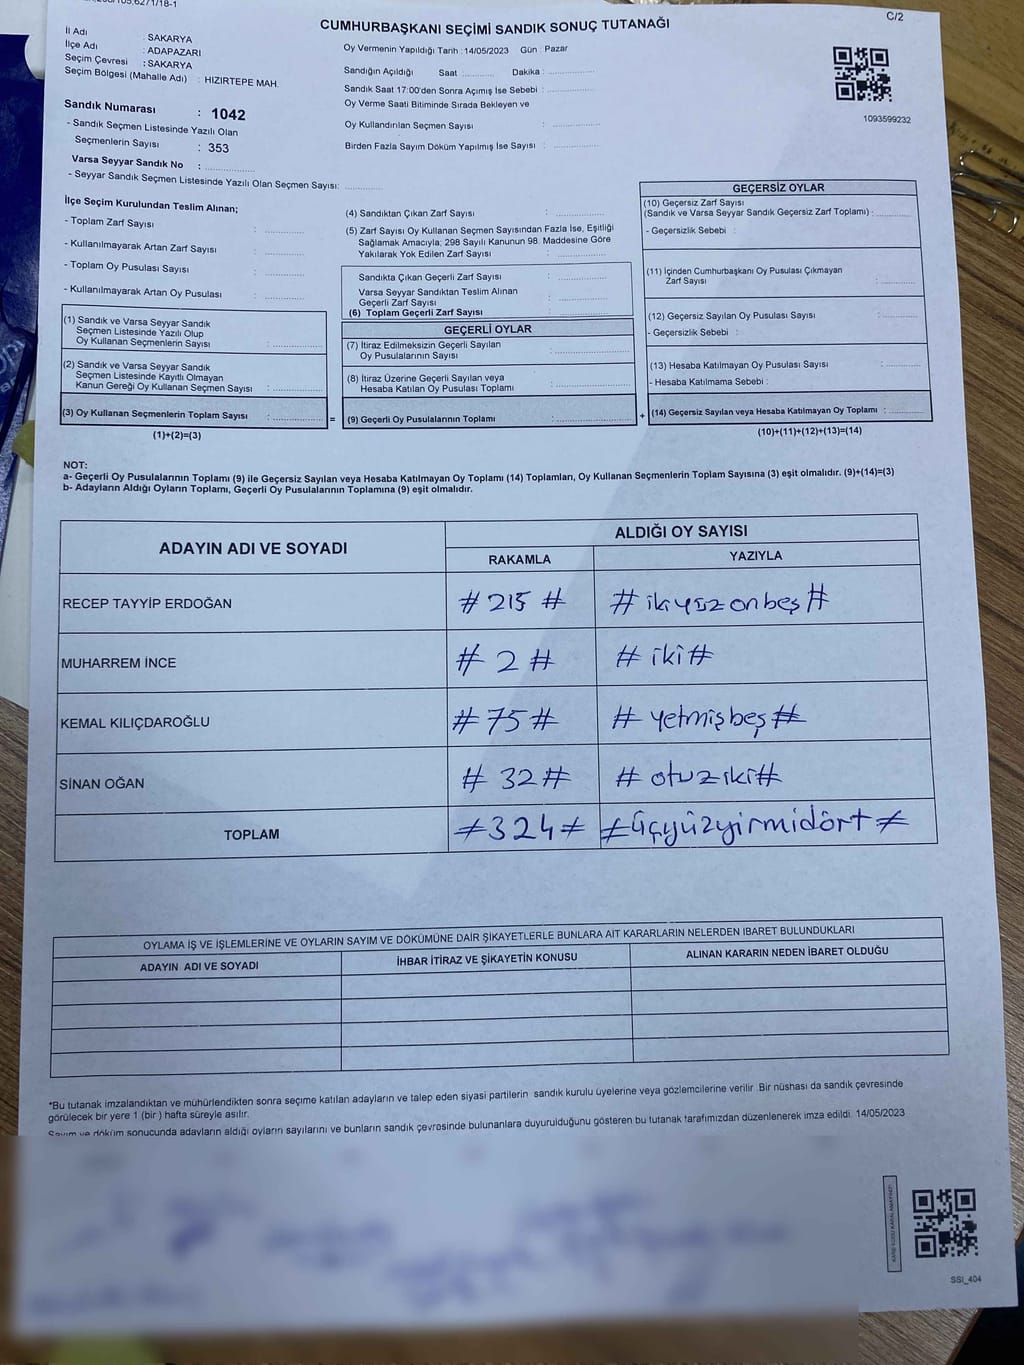 C/2
CUMHURBAŞKANI SEÇİMİ SANDIK SONUÇ TUTANAĞI
İl Adı : SAKARYA
İlçe Adı : ADAPAZARI
Seçim Çevresi : SAKARYA
Seçim Bölgesi (Mahalle Adı) : HIZIRTEPE MAH.
Oy Vermenin Yapıldığı Tarih : 14/05/2023 Gün : Pazar
Sandığın Açıldığı Saat :............ Dakika :................
Sandık Saat 17:00'den Sonra Açımış İse Sebebi :................
Oy Verme Saati Bitiminde Sırada Bekleyen ve
Oy Kullandırılan Seçmen Sayısı :................
Birden Fazla Sayım Döküm Yapılmış İse Sayısı :................
1093599232
Sandık Numarası : 1042
- Sandık Seçmen Listesinde Yazılı Olan
Seçmenlerin Sayısı : 353
Varsa Seyyar Sandık No :................
- Seyyar Sandık Seçmen Listesinde Yazılı Olan Seçmen Sayısı: ............
İlçe Seçim Kurulundan Teslim Alınan;
- Toplam Zarf Sayısı :................
- Kullanılmayarak Artan Zarf Sayısı :................
- Toplam Oy Pusulası Sayısı :................
- Kullanılmayarak Artan Oy Pusulası :................
(1) Sandık ve Varsa Seyyar Sandık
Seçmen Listesinde Yazılı Olup
Oy Kullanan Seçmenlerin Sayısı :................
(2) Sandık ve Varsa Seyyar Sandık
Seçmen Listesinde Kayıtlı Olmayan
Kanun Gereği Oy Kullanan Seçmen Sayısı :................
(3) Oy Kullanan Seçmenlerin Toplam Sayısı :................ =
(1)+(2)=(3)
(4) Sandıktan Çıkan Zarf Sayısı :................
(5) Zarf Sayısı Oy Kullanan Seçmen Sayısından Fazla İse, Eşitliği
Sağlamak Amacıyla; 298 Sayılı Kanunun 98. Maddesine Göre
Yakılarak Yok Edilen Zarf Sayısı :................
Sandıkta Çıkan Geçerli Zarf Sayısı :................
Varsa Seyyar Sandıktan Teslim Alınan
Geçerli Zarf Sayısı :................
(6) Toplam Geçerli Zarf Sayısı :................
GEÇERLİ OYLAR
(7) İtiraz Edilmeksizin Geçerli Sayılan
Oy Pusulalarının Sayısı :................
(8) İtiraz Üzerine Geçerli Sayılan veya
Hesaba Katılan Oy Pusulası Toplamı :................
(9) Geçerli Oy Pusulalarının Toplamı :................ +
GEÇERSİZ OYLAR
(10) Geçersiz Zarf Sayısı
(Sandık ve Varsa Seyyar Sandık Geçersiz Zarf Toplamı) :............
- Geçersizlik Sebebi :
(11) İçinden Cumhurbaşkanı Oy Pusulası Çıkmayan
Zarf Sayısı :............
(12) Geçersiz Sayılan Oy Pusulası Sayısı :............
- Geçersizlik Sebebi :
(13) Hesaba Katılmayan Oy Pusulası Sayısı :............
- Hesaba Katılmama Sebebi :
(14) Geçersiz Sayılan veya Hesaba Katılmayan Oy Toplamı :............
(10)+(11)+(12)+(13)=(14)
NOT:
a- Geçerli Oy Pusulalarının Toplamı (9) ile Geçersiz Sayılan veya Hesaba Katılmayan Oy Toplamı (14) Toplamları, Oy Kullanan Seçmenlerin Toplam Sayısına (3) eşit olmalıdır. (9)+(14)=(3)
b- Adayların Aldığı Oyların Toplamı, Geçerli Oy Pusulalarının Toplamına (9) eşit olmalıdır.
ADAYIN ADI VE SOYADI
ALDIĞI OY SAYISI
RAKAMLA YAZIYLA
RECEP TAYYİP ERDOĞAN # 215 # # ikiyüzonbeş #
MUHARREM İNCE # 2 # # iki #
KEMAL KILIÇDAROĞLU # 75 # # yetmişbeş #
SİNAN OĞAN # 32 # # otuziki #
TOPLAM ≠324≠ ≠üçyüzyirmidört≠
OYLAMA İŞ VE İŞLEMLERİNE VE OYLARIN SAYIM VE DÖKÜMÜNE DAİR ŞİKAYETLERLE BUNLARA AİT KARARLARIN NELERDEN IBARET BULUNDUKLARI
ADAYIN ADI VE SOYADI İHBAR İTİRAZ VE ŞİKAYETİN KONUSU ALINAN KARARIN NEDEN İBARET OLDUĞU
*Bu tutanak imzalandıktan ve mühürlendikten sonra seçime katılan adayların ve talep eden siyasi partilerin sandık kurulu üyelerine veya gözlemcilerine verilir. Bir nüshası da sandık çevresinde
görülecek bir yere 1 (bir ) hafta süreyle asılır.
Sayım ve döküm sonucunda adayların aldığı oyların sayılarını ve bunların sandık çevresinde bulunanlara duyurulduğunu gösteren bu tutanak tarafımızdan düzenlenerek imza edildi. 14/05/2023
SSI_404